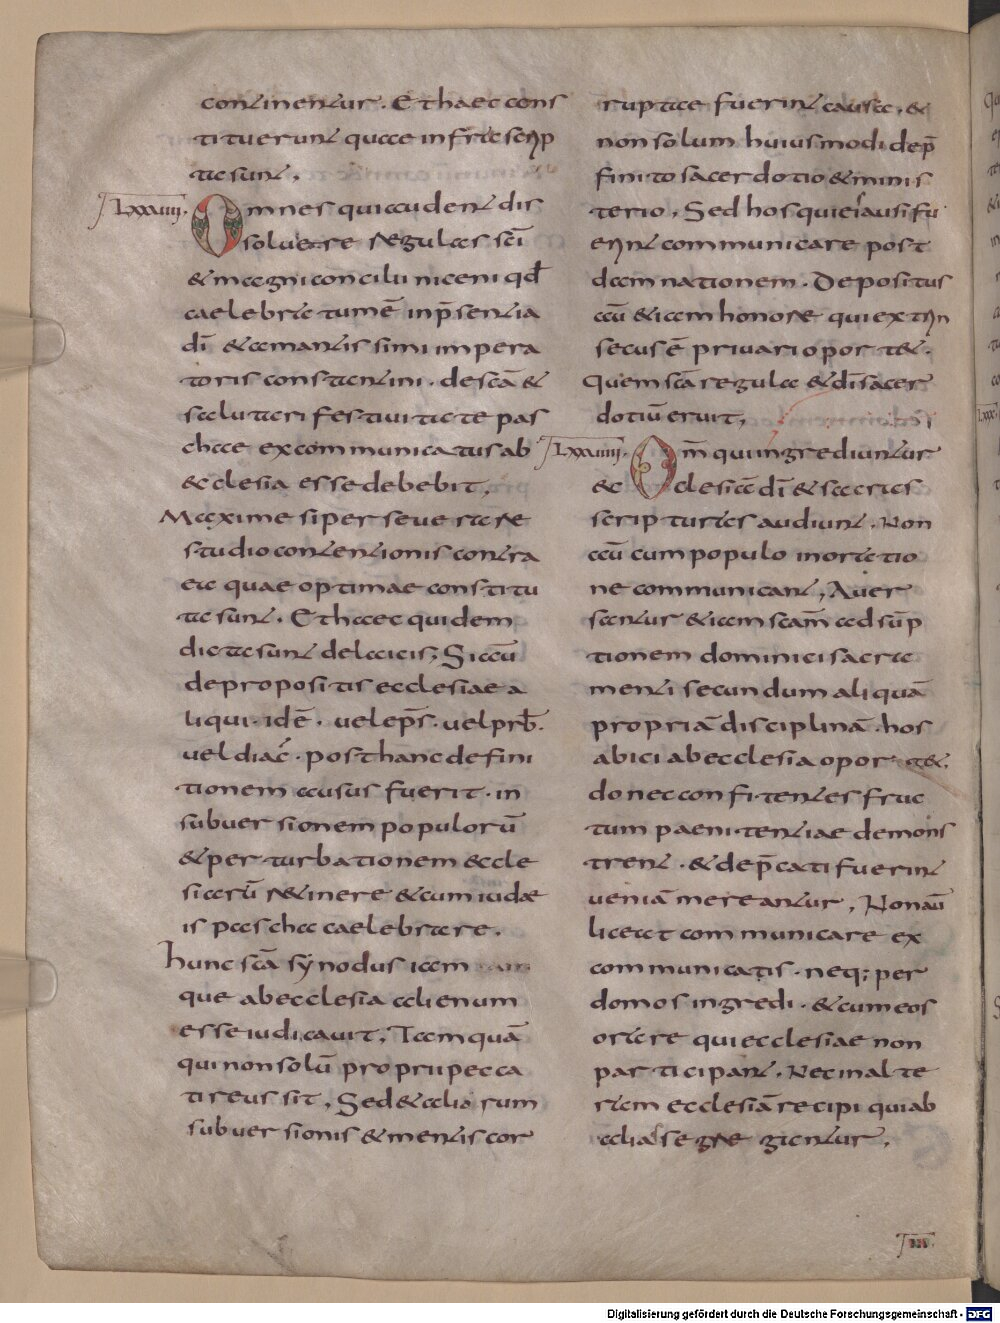 continentur. Et haec cons
tituerunt quae infra scrip
ta sunt,
LXXVIIII. Omnes qui audent dis
soluere regulas sci
& magni concilii niceni qd
caelebratum ē in p̄sentia
dī & amantissimi impera
toris constantini. de scā &
salutari festiuitate pas
chae excommunicatus ab
& clesia esse debebit,
Maxime si perseuerare
studio contentionis contra
ea quae optimae constitu
ta sunt. Et haec quidem
dicta sunt de laicis; Si aū
de propositis ecclesiae a
liqui. id ē. uel ep̄s. uel prb̄.
uel diac̄. post hanc defini
tionem ausus fuerit. in
subuersionem populorū
& perturbationem & cle
siarū retinere & cum iudae
is pascha caelebrare.
hunc scā synodus iam
que ab ecclesia alienum
esse iudicauit, Tam quā
qui non solū proprii pecca
ti reus sit, Sed & aliarum
subuersionis & mentis cor
ruptae fuerint causae, &
non solum huiusmodi dep̄
finito sacerdotio & minis
terio, Sed hos qui ei ausi fu
erint communicare post
damnationem. Depositus
aū & iam honore qui extrin
secus ē priuari oport&.
Quem scā regula & dī sacer
dotiū eruit,
LXXVIIII. Om̄ qui ingrediuntur
& clesiā dī & sacras
scripturas audiunt. Non
aū cum populo in oratio
ne communicant, Auer
santur & iam scām adsūp
tionem dominici sacra
menti secundum aliquā
propriā disciplinā. hos
abici ab ecclesia oport&,
donec confitentes fruc
tum paenitentiae demons
trent. & dep̄cati fuerint
ueniā mereantur, Non aū
liceat communicare ex
communicatis. neq; per
domos ingredi. & cum eos
orare qui ecclesiae non
participant. Nec in alte
ram ecclesiā recipi qui ab
alia segregantur,